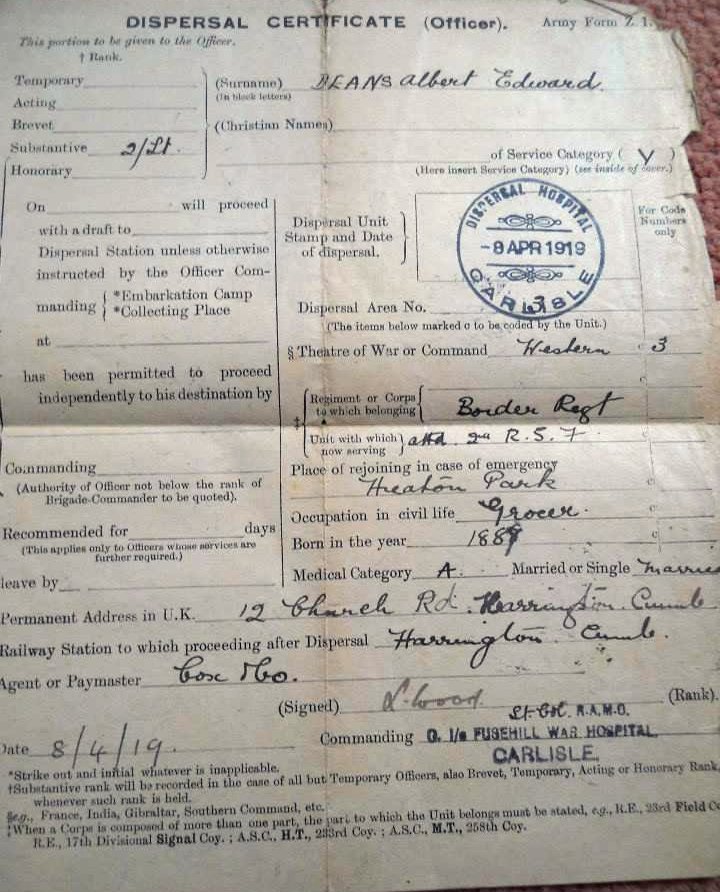 DISPERSAL CERTIFICATE (Officer). Army Form Z. 1.
This portion to be given to the Officer.
† Rank.
Temporary
Acting
Brevet
Substantive 2/Lt.
Honorary
(Surname) DEANS Albert Edward
(In block letters)
(Christian Names)
of Service Category ( Y )
(Here insert Service Category) (see inside of cover.)
On will proceed
with a draft to
Dispersal Station unless otherwise
instructed by the Officer Com-
manding { *Embarkation Camp
*Collecting Place
at
has been permitted to proceed
independently to his destination by
Commanding
(Authority of Officer not below the rank of
Brigade-Commander to be quoted).
Recommended for days
(This applies only to Officers whose services are
further required.)
leave by
Dispersal Unit
Stamp and Date
of dispersal.
DISPERSAL HOSPITAL
-8 APR 1919
CARLISLE
For Code
Numbers
only
Dispersal Area No. 3
(The items below marked c to be coded by the Unit.)
§ Theatre of War or Command Western c 3
c
‡ Regiment or Corps
to which belonging Border Regt
Unit with which
now serving attd. 2nd R. S. F.
Place of rejoining in case of emergency
Heaton Park c
Occupation in civil life Grocer. c
Born in the year 1889 c
Medical Category A. Married or Single Married
Permanent Address in U.K. 12 Church Rd. Harrington. Cumb.
Railway Station to which proceeding after Dispersal Harrington. Cumb.
Agent or Paymaster Cox & Co.
(Signed) L. Wood
Lt. Col. R.A.M.C. (Rank).
Commanding O. I/c FUSEHILL WAR HOSPITAL,
CARLISLE.
Date 8/4/19.
*Strike out and initial whatever is inapplicable.
†Substantive rank will be recorded in the case of all but Temporary Officers, also Brevet, Temporary, Acting or Honorary Rank,
whenever such rank is held.
§e.g., France, India, Gibraltar, Southern Command, etc.
‡When a Corps is composed of more than one part, the part to which the Unit belongs must be stated, e.g., R.E., 23rd Field Co.
R.E., 17th Divisional Signal Coy. ; A.S.C., H.T., 233rd Coy. ; A.S.C., M.T., 258th Coy.